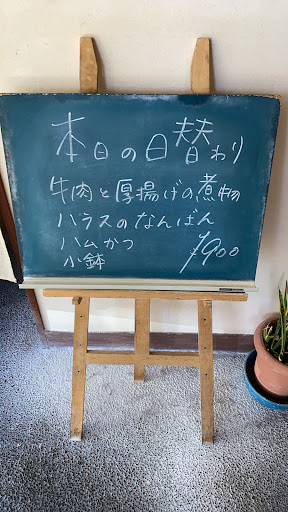 本日の日替わり
牛肉と厚揚げの煮物
ハラスのなんばん
ハムかつ
小鉢
¥900